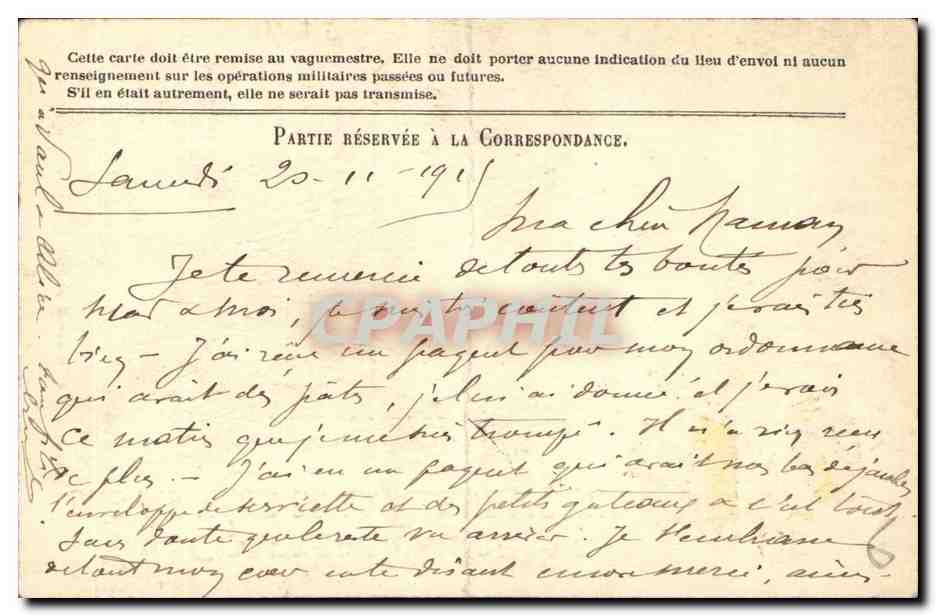 Cette carte doit être remise au vaguemestre. Elle ne doit porter aucune indication du lieu d'envoi ni aucun
renseignement sur les opérations militaires passées ou futures.
S'il en était autrement, elle ne serait pas transmise.
PARTIE RÉSERVÉE À LA CORRESPONDANCE.
Samedi 20-11-1915
Ma chère Maman
Je te remercie de toutes tes bontés pour
Mad & moi, je suis très content et je vais très
bien — J'ai reçu un paquet pour mon ordonnance
qui avait des pâtés, je lui ai donné et je vois
ce matin que je me suis trompé. Il n'a rien reçu
de plus. — J'ai eu un paquet qui avait
l'enveloppe de serviette et des petits gateaux & c'est tout.
Sans doute que le reste va arriver. Je t'embrasse
de tout mon coeur en te disant encore merci, ainsi
qu'à
CPAPHIL